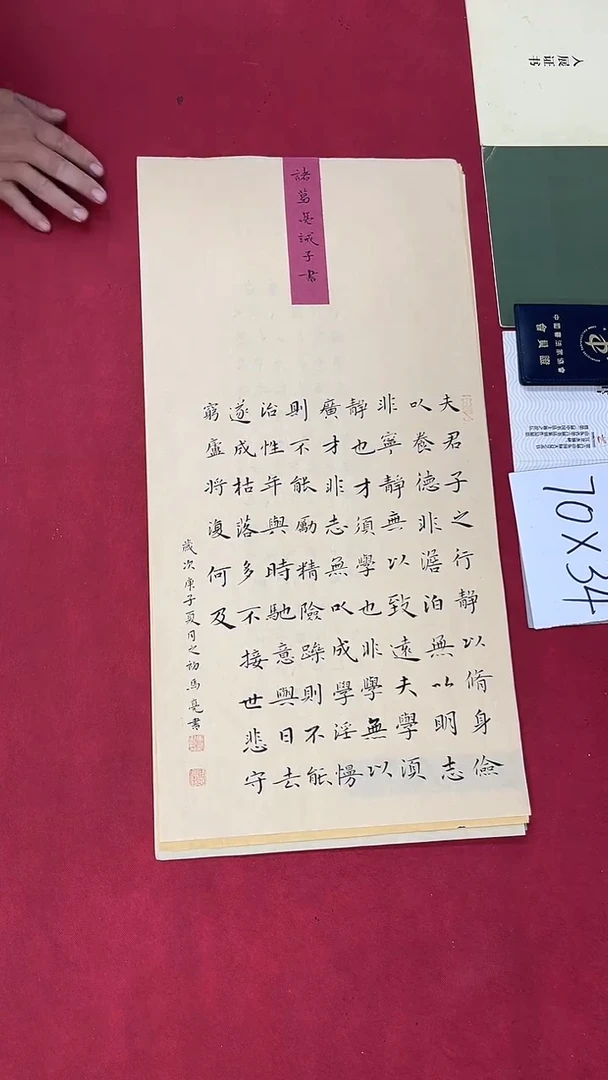 諸葛亮誡子書
夫君子之行靜以脩身儉
以養德非澹泊無以明志
非寧靜無以致遠夫學須
靜也才須學也非學無以
廣才非志無以成學淫慢
則不能勵精險躁則不能
治性年與時馳意與日去
遂成枯落多不接世悲守
窮廬將復何及
歲次庚子夏月之初馬亮書
入展证书
中國書法家協會
會員證
70×34